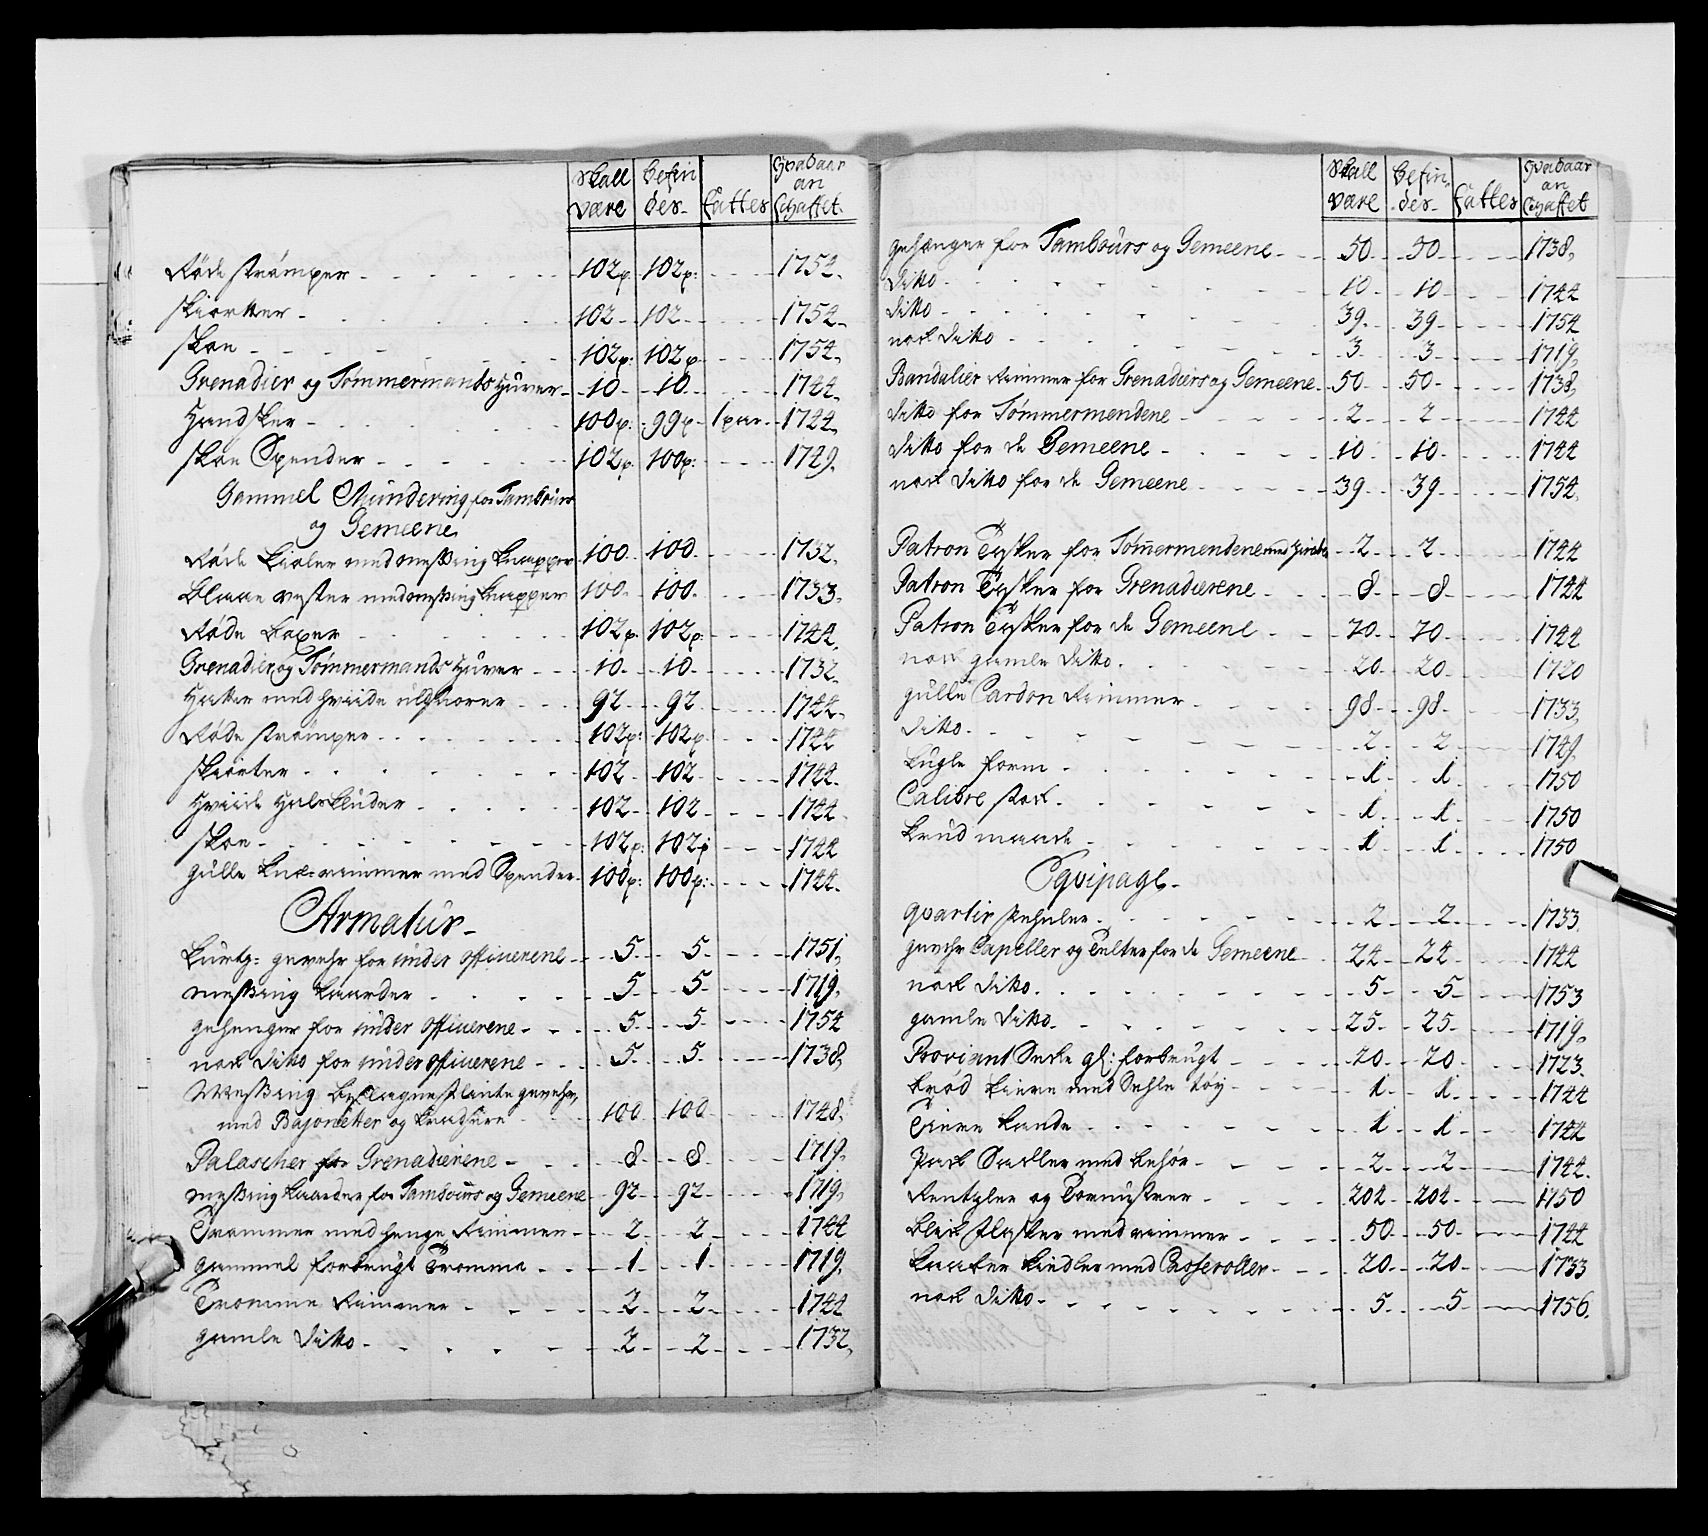 Skall være | befin des | fattes | hvadaar an schaffet
Røde strømper - 102p: 102p: 1754
Skiorter - 102 102 1754
Skoe - 102p: 102p 1754
Grenadier og Tømmermands Huver - 10 10 1744
Handsker - 100p: 99p 1 par 1744
Skoe Spender - 102p 100p: 1749
Gammel Mundering for Tambours
og Gemeene
Røde Kioler med messing knapper 100 100 1732
Blaae vester med messing knapper 100 100 1733
Røde boxer 102p 102p: 1744
Grenadier og Tømmermands Huver 10 10 1732
Hatter med hviide uldsnorer 92 92 1744
Røde strømper 102p: 102p 1744
Skiorter 102 102 1744
Hviide Halskluder 102 102 1744
Skoe 102p: 102p 1744
gulle knæ-remmer med Spender 100p: 100p: 1744
Armatur
Kurtz: gevehr for under officuerene 5 5 1751
messing kaarder 5 5 1719
gehenger for under officuerene 5 5 1754
noch dito for under officuerene 5 5 1738
Messing beslagne flinte gevehr,
med Bajonetter og 100 100 1748
Palascher for Grenadierene 8 8 1719
messing kaarder for Tambours og Gemeene 92 92 1719
Trommer med henge Remmen 2 2 1744
gammel forbrugt Tromme 1 1 1719
Tromme Remmer 2 2 1744
gamle dito 2 2 1732
Skall være | befin des | fattes | hvadaar an schaffet
gehenger for Tambours og Gemeene 50 50 1738
dito 10 10 1744
dito 39 39 1754
noch dito 3 3 1719
Bandalier Remmer for Grenadiers og Gemeene 50 50 1738
dito for Tømmermendene 2 2 1744
dito for de Gemeene 10 10 1744
noch dito for de Gemeene 39 39 1754
Patron Tasker for Tømermendene med 2 2 1744
Patron Tasker for Grenadierene 8 8 1744
Patron Tasker for de Gemeene 70 70 1744
noch gamle dito 20 20 1720
gulle Cardon Remmer 98 98 1733
dito 2 2 1749
Kugle form 1 1 1750
Calibre stock 1 1 1750
krud maade 1 1 1750
Eqvipage
qvarteer 2 2 1733
gevehr Capeller og Telter for de Gemeene 24 24 1744
noch dito 5 5 1753
gamle dito 25 25 1719
Proviant Secke gl: forbrugt 20 20 1723
brød kærre med Sehle tøy 1 1 1744
Tinne kande 1 1 1744
Pack Sadler med behør 2 2 1744
Rentzler og Tornystrer 202 202 1750
bleck flasker med remmer 50 50 1744
kaaber kiedler med Casseroller 20 20 1733
noch dito 5 5 1756